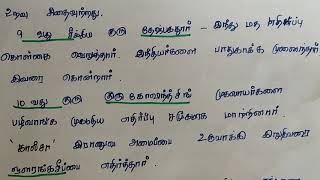 உறவு சிதைவுற்றது.
9 வது சீக்கிய குரு தேஜ்பகதூர் - இந்து மத எதிர்ப்பு
கொள்கை வெறுத்தார். இந்தியர்களை பாதுகாக்க முனைந்தார்
இவரை கொன்றார்.
10 வது குரு குரு கோவிந்த்சிங் முகலாயர்களை
பழிவாங்க முகலாய எதிர்ப்பு சக்தியாக மாற்றினார்.
'கால்சா' இராணுவ அமைப்பை உருவாக்கி இறுதிவரை
ஔரங்கசீப்பை எதிர்த்தார்.